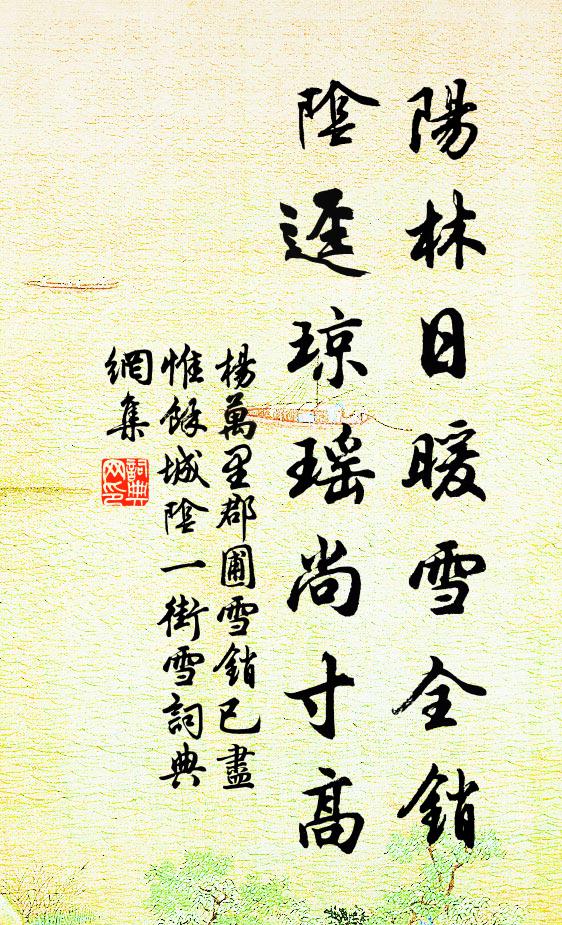 陽林日暖雪全銷
陰逕琼瑤尚寸高
楊萬里郡圃雪銷已盡
惟餘城陰一街雪詞典
網集
詞典
网印